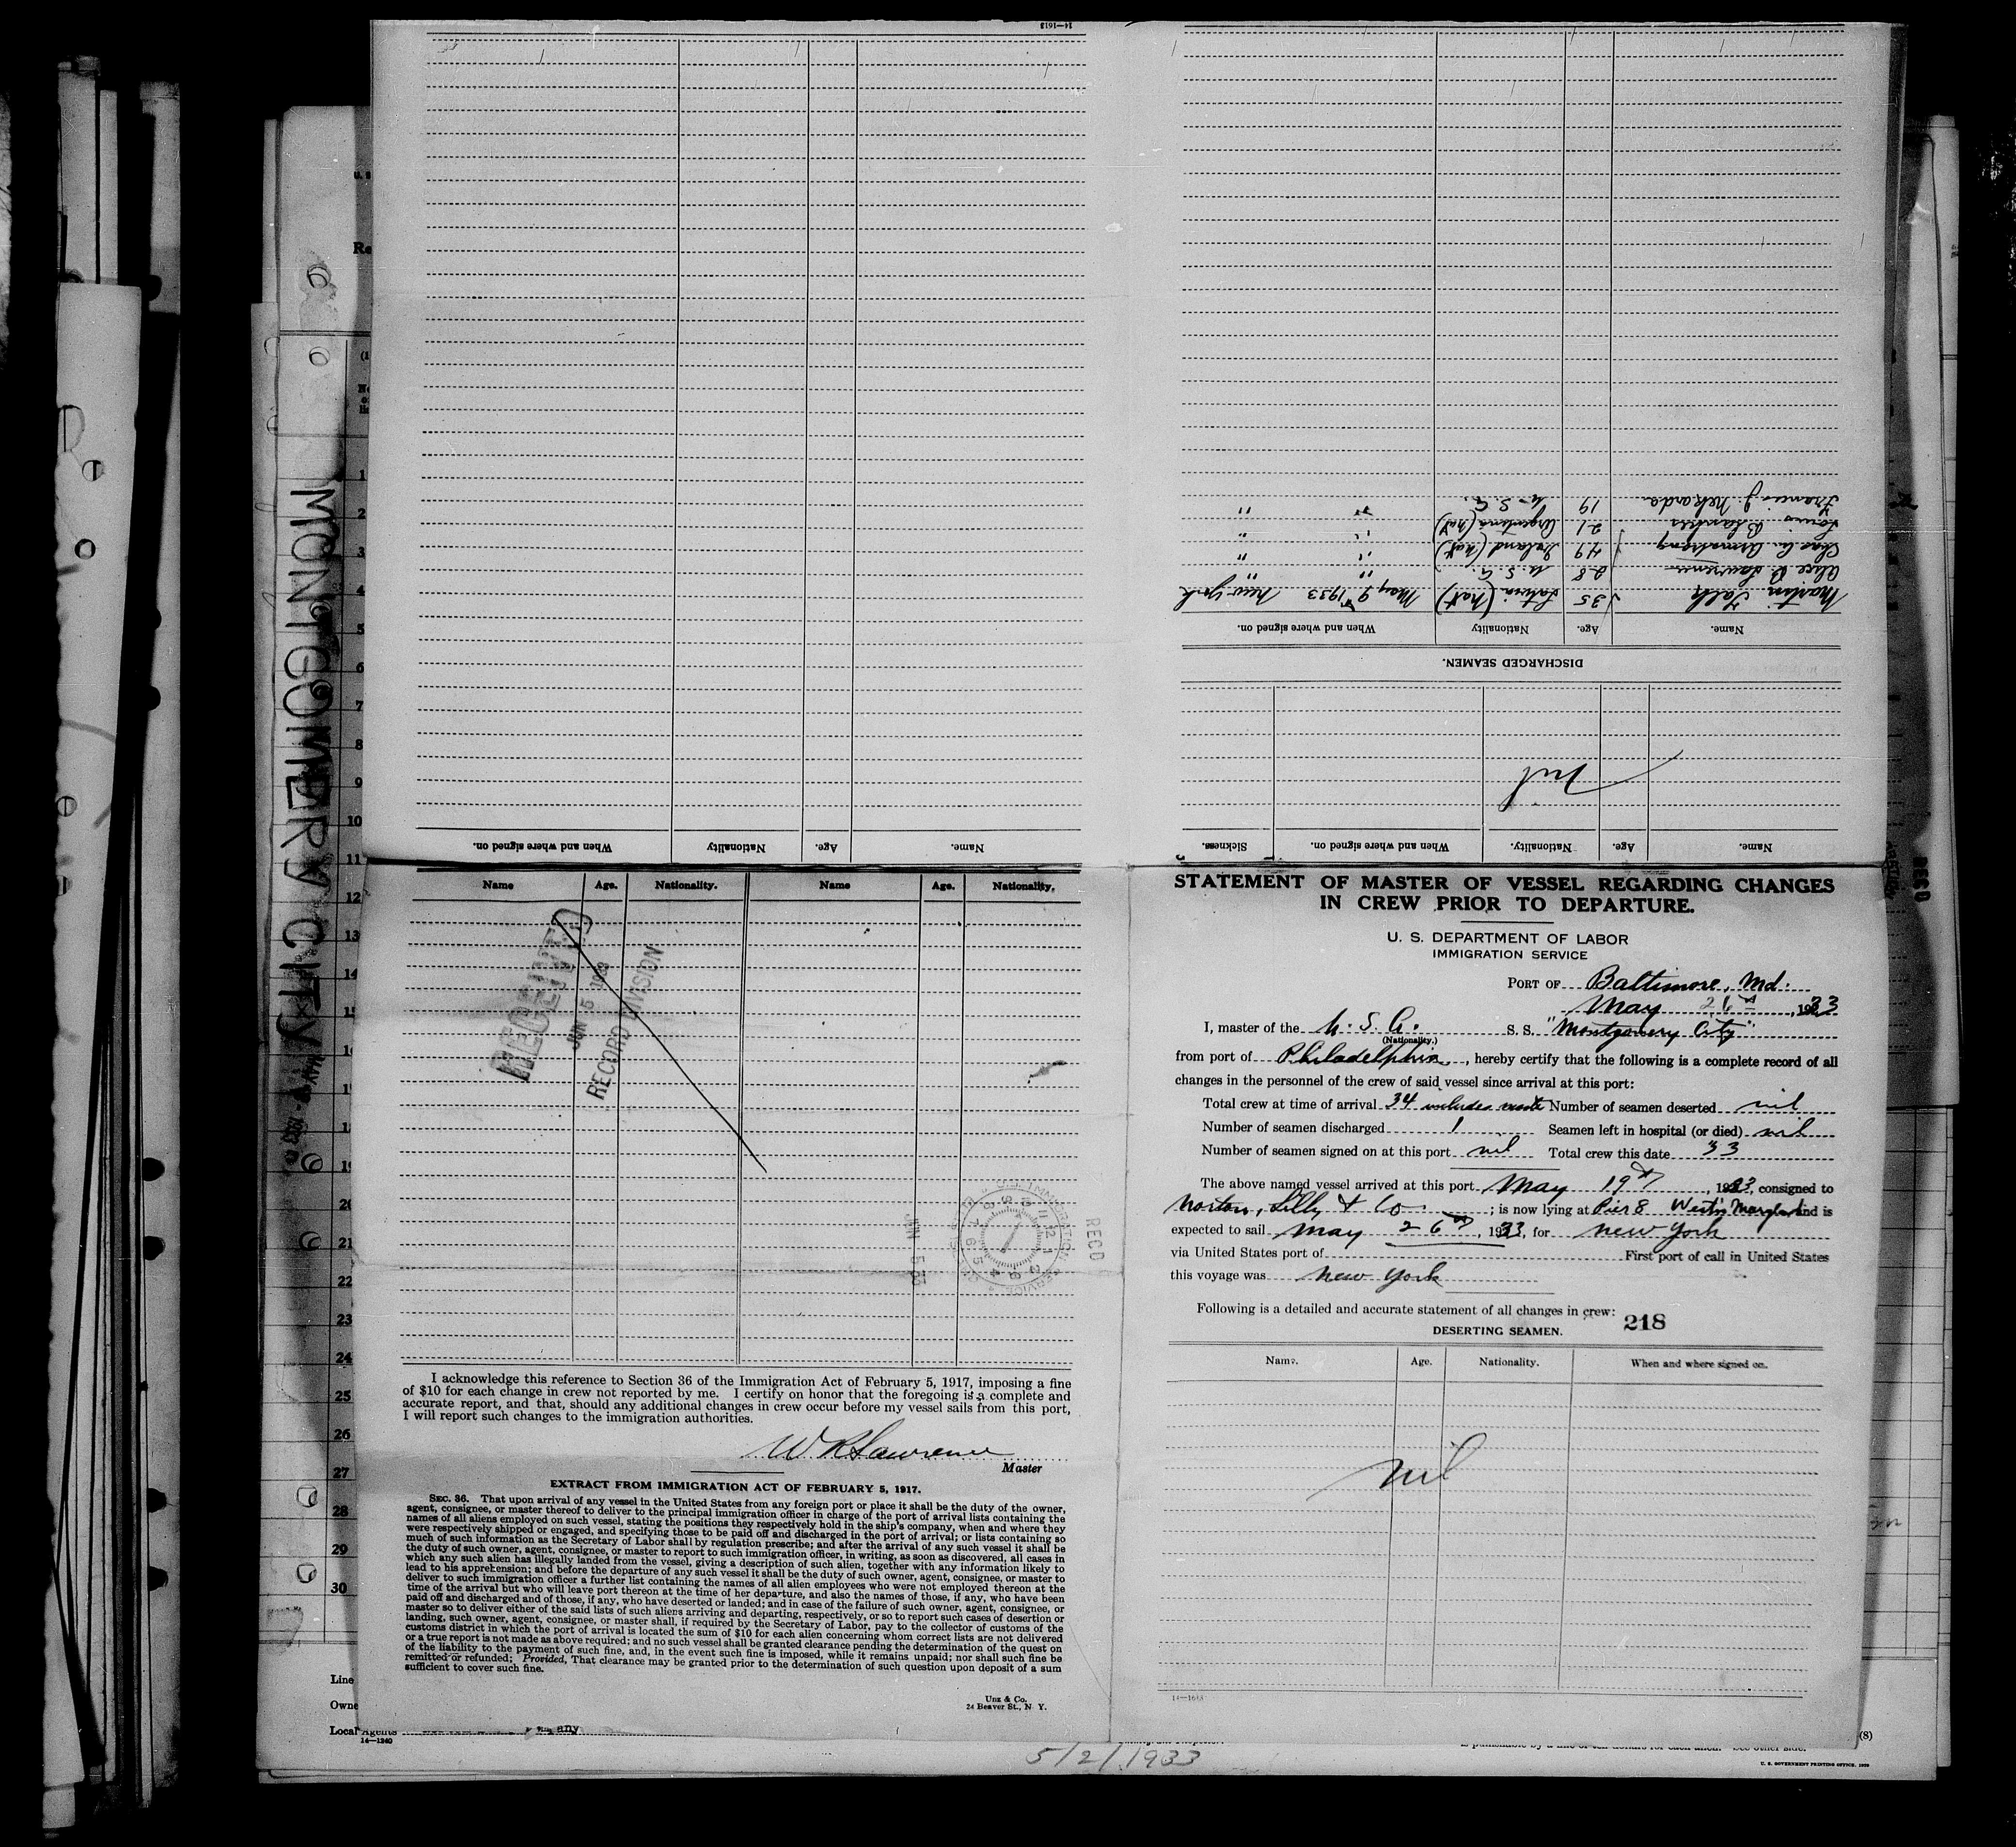 14—1613
Name. Age. Nationality When and where signed on.
Name. Age. Nationality. When and where signed on. Sickness.
nil
DISCHARGED SEAMEN.
Name. Age. Nationality When and where signed on.
Martin 35 Latvia (nat) May 9 1933 New York
Alice D Lawrence 28 U.S.A. " "
Chas C. Armstrong 49 Ireland (nat) " "
Louis B 21 Argentina (nat) " "
Francis J. 19 U.S.A. " "
MONTGOMERY CITY
1
2
3
4
5
6
7
8
9
10
11
12
13
14
15
19
20
21
22
23
24
25
26
27
28
29
30
Name Age. Nationality. Name Age. Nationality.
RECEIVED
JUN 5 1933
RECORD DIVISION
JUN 5 33
RECD
I acknowledge this reference to Section 36 of the Immigration Act of February 5, 1917, imposing a fine
of $10 for each change in crew not reported by me. I certify on honor that the foregoing is a complete and
accurate report, and that, should any additional changes in crew occur before my vessel sails from this port,
I will report such changes to the immigration authorities.
W R Lawrence
Master
EXTRACT FROM IMMIGRATION ACT OF FEBRUARY 5, 1917.
SEC. 36. That upon arrival of any vessel in the United States from any foreign port or place it shall be the duty of the owner,
agent, consignee, or master thereof to deliver to the principal immigration officer in charge of the port of arrival lists containing the
names of all aliens employed on such vessel, stating the positions they respectively hold in the ship's company, when and where they
were respectively shipped or engaged, and specifying those to be paid off and discharged in the port of arrival; or lists containing so
much of such information as the Secretary of Labor shall by regulation prescribe; and after the arrival of any such vessel it shall be
the duty of such owner, agent, consignee, or master to report to such immigration officer, in writing, as soon as discovered, all cases in
which any such alien has illegally landed from the vessel, giving a description of such alien, together with any information likely to
lead to his apprehension; and before the departure of any such vessel it shall be the duty of such owner, agent, consignee, or master to
deliver to such immigration officer a further list containing the names of all alien employees who were not employed thereon at the
time of the arrival but who will leave port thereon at the time of her departure, and also the names of those, if any, who have been
paid off and discharged and of those, if any, who have deserted or landed; and in case of the failure of such owner, agent, consignee, or
master so to deliver either of the said lists of such aliens arriving and departing, respectively, or so to report such cases of desertion or
landing, such owner, agent, consignee, or master shall, if required by the Secretary of Labor, pay to the collector of customs of the
customs district in which the port of arrival is located the sum of $10 for each alien concerning whom correct lists are not delivered
or a true report is not made as above required; and no such vessel shall be granted clearance pending the determination of the quest on
of the liability to the payment of such fine, and, in the event such fine is imposed, while it remains unpaid; nor shall such fine be
remitted or refunded; Provided, That clearance may be granted prior to the determination of such question upon deposit of a sum
sufficient to cover such fine.
Unz & Co.
24 Beaver St., N Y.
Line
Owne
Local Agents
14—1240
STATEMENT OF MASTER OF VESSEL REGARDING CHANGES
IN CREW PRIOR TO DEPARTURE.
U. S. DEPARTMENT OF LABOR
IMMIGRATION SERVICE
PORT OF Baltimore, Md.
May 26th, 1933
I, master of the U. S. A. S. S. "Montgomery City"
(Nationality.)
from port of Philadelphia, hereby certify that the following is a complete record of all
changes in the personnel of the crew of said vessel since arrival at this port:
Total crew at time of arrival 34 includes master Number of seamen deserted nil
Number of seamen discharged 1 Seamen left in hospital (or died) nil
Number of seamen signed on at this port nil Total crew this date 33
The above named vessel arrived at this port May 19th, 1933, consigned to
Norton, Lilly & Co ; is now lying at Pier 8 West'n Maryland and is
expected to sail May 26th, 1933, for New York
via United States port of First port of call in United States
this voyage was New York
Following is a detailed and accurate statement of all changes in crew:
218
DESERTING SEAMEN.
Name. Age. Nationality. When and where signed on.
nil
5/2/1933
(8)
U. S. GOVERNMENT PRINTING OFFICE